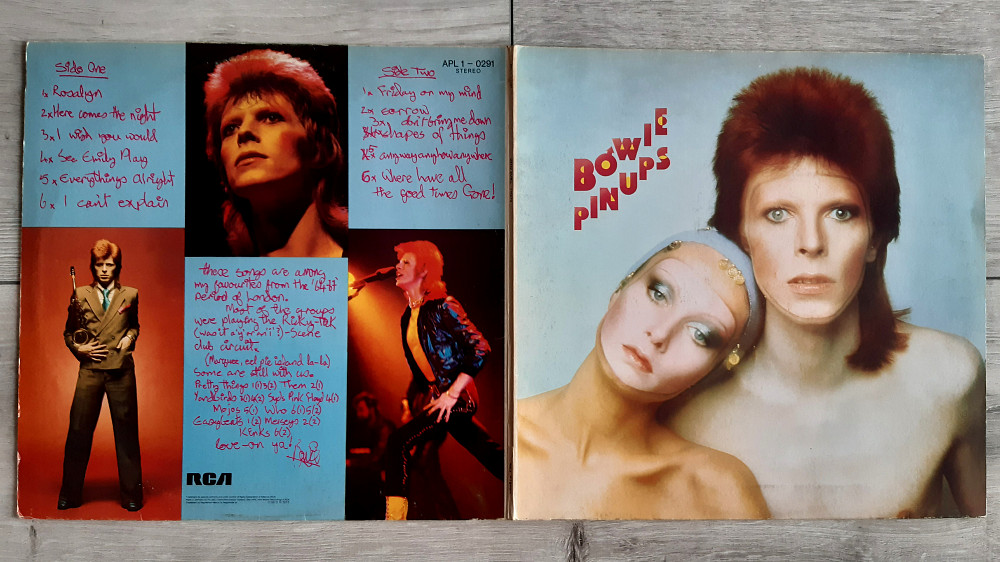 Side One
1x Rosalyn
2x Here comes the night
3x I wish you would
4x See Emily Play
5x Everythings Alright
6x I can't explain
these songs are among
my favourites from the '64-67
period of London.
Most of the groups
were playing the Ricky-Tick
(was it a 'y' or 'i'?)-Scene
club circuit.
(Marquee, eel pie island la-la)
Some are still with us.
Pretty things 1(1) 3(2) Them 2(1)
Yardbirds 3(1) 4(2) Syd's Pink Floyd 4(1)
Mojos 5(1) Who 6(1) 5(2)
Easybeats 1(2) Merseys 2(2)
Kinks 6(2)
love-on ya!
RCA
APL 1 - 0291
STEREO
Side Two
1x Friday on my mind
2x sorrow
3x don't bring me down
shapes of things
5x anywayanyhowanywhere
6x Where have all
the good times Gone!
BOWIE
PINUPS